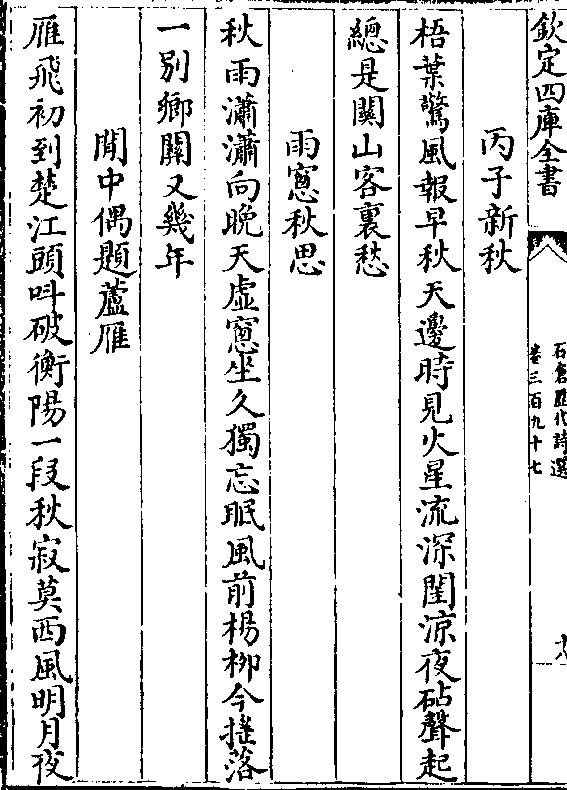 欽定四庫全書
石倉歷代詩選
卷三百九十七
丙子新秋
梧葉驚風報早秋天邊時見火星流深閨涼夜砧聲起
總是關山客裏愁
雨窻秋思
秋雨瀟瀟向晚天虛窻坐久獨忘眠風前楊柳今揺落
一別鄉關又幾年
閒中偶題蘆雁
雁飛初到楚江頭呌破衡陽一段秋寂莫西風明月夜